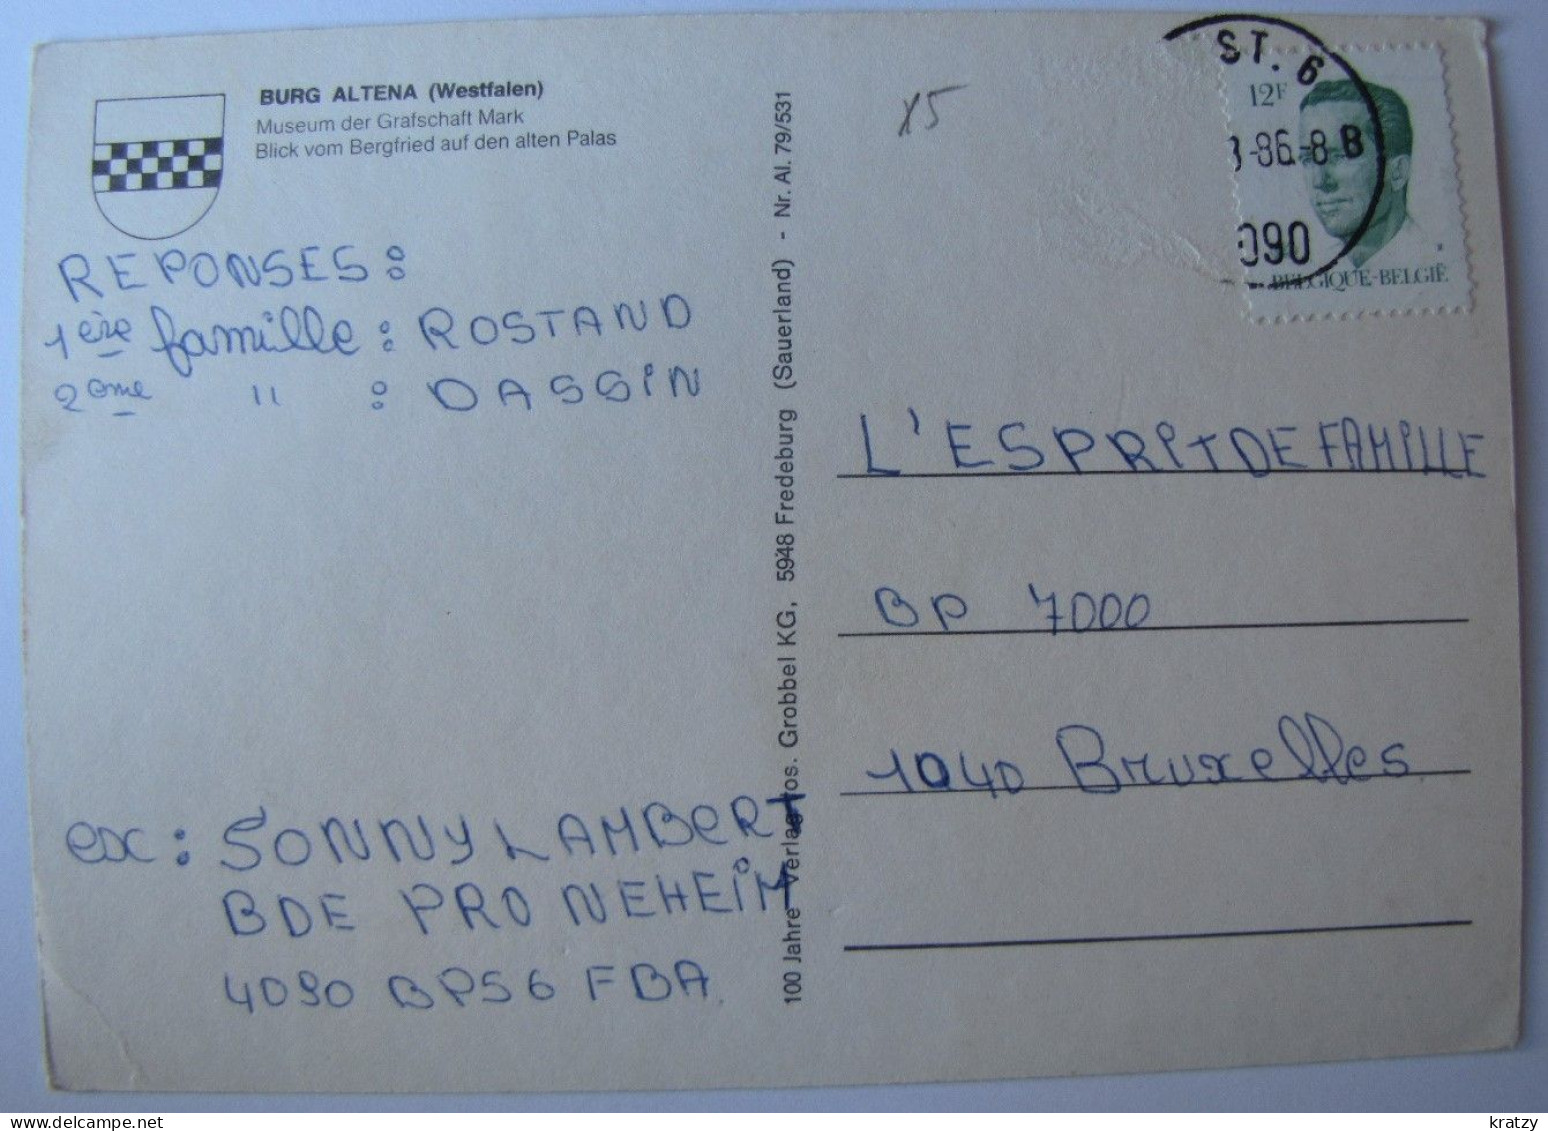 BURG ALTENA (Westfalen)
Museum der Grafschaft Mark
Blick vom Bergfried auf den alten Palas
REPONSES:
1ère famille: ROSTAND
2ème " : DASSIN
ex: SONNY LAMBERT
BDE PRO NEHEIM
4090 BPS 6 FBA
100 Jahre Verlag Jos. Grobbel KG, 5948 Fredeburg (Sauerland) - Nr. Al. 79/531
X5
ST. 6
12F
-86.-8 B
090
BELGIQUE-BELGIË
L'ESPRIT DE FAMILLE
BP 7000
1040 Bruxelles
delcampe.net
kratzy